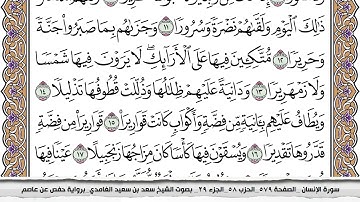 ذَٰلِكَ ٱلْيَوْمِ وَلَقَّىٰهُمْ نَضْرَةً وَسُرُورًا ١١ وَجَزَىٰهُم بِمَا صَبَرُوا۟ جَنَّةً
وَحَرِيرًا ١٢ مُّتَّكِـِٔينَ فِيهَا عَلَى ٱلْأَرَآئِكِ ۖ لَا يَرَوْنَ فِيهَا شَمْسًا
وَلَا زَمْهَرِيرًا ١٣ وَدَانِيَةً عَلَيْهِمْ ظِلَٰلُهَا وَذُلِّلَتْ قُطُوفُهَا تَذْلِيلًا ١٤
وَيُطَافُ عَلَيْهِم بِـَٔانِيَةٍ مِّن فِضَّةٍ وَأَكْوَابٍ كَانَتْ قَوَارِيرَا۠ ١٥ قَوَارِيرَا۟ مِن فِضَّةٍ
قَدَّرُوهَا تَقْدِيرًا ١٦ وَيُسْقَوْنَ فِيهَا كَأْسًا كَانَ مِزَاجُهَا زَنجَبِيلًا ١٧ عَيْنًا فِيهَا
سورة الإنسان _الصفحة ٥٧٩_الحزب ٥٨_الجزء ٢٩ _ بصوت الشيخ سعد بن سعيد الغامدي_ برواية حفص عن عاصم